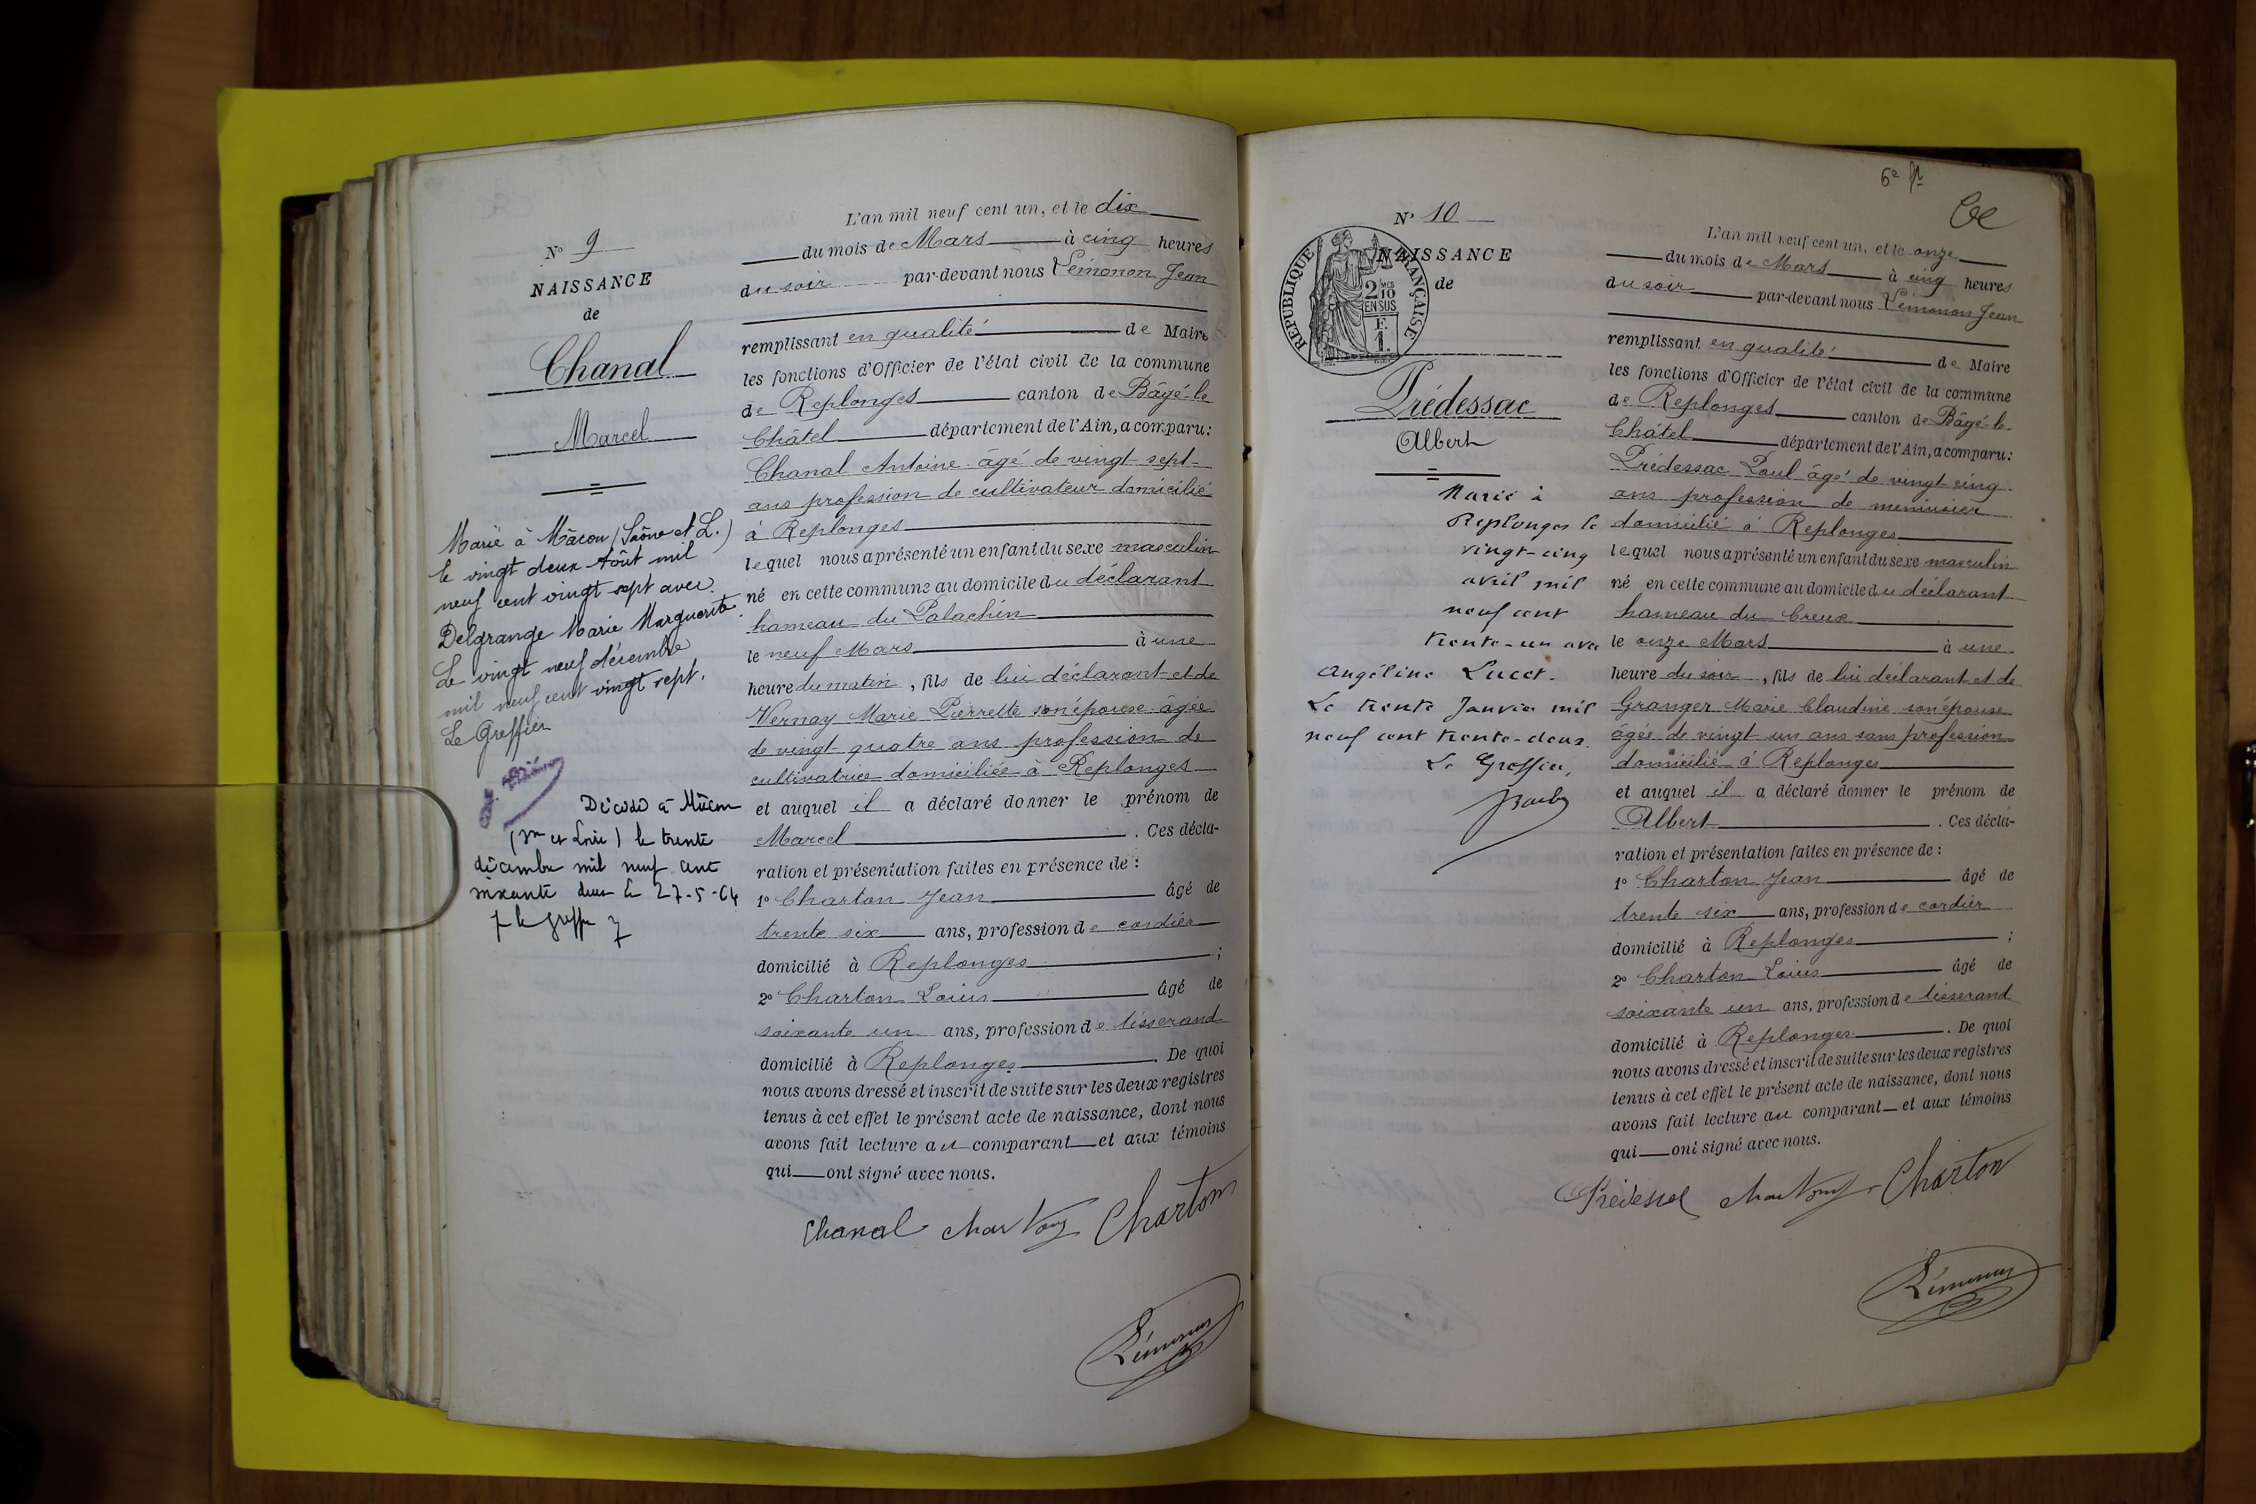 L'an mil neuf cent un, et le dix
N° 9
du mois de Mars à cinq heures
NAISSANCE
du soir par-devant nous Lémonon Jean
de
Chanal
remplissant en qualité de Maire
les fonctions d'Officier de l'état civil de la commune
de Replonges canton de Bâgé-le
Marcel
Châtel département de l'Ain, a comparu:
Chanal Antoine âgé de vingt sept
ans profession de cultivateur domicilié
à Replonges
lequel nous a présenté un enfant du sexe masculin
né en cette commune au domicile du déclarant
hameau du Palachin
le neuf Mars à une
heure du matin, fils de lui déclarant et de
Vernay Marie Pierrette son épouse âgée
de vingt quatre ans profession de
cultivatrice domiciliée à Replonges
et auquel il a déclaré donner le prénom de
Marcel. Ces décla-
ration et présentation faites en présence de:
1° Charton Jean âgé de
trente six ans, profession de cordier
domicilié à Replonges;
2° Charton Louis âgé de
soixante un ans, profession de tisserand
domicilié à Replonges. De quoi
nous avons dressé et inscrit de suite sur les deux registres
tenus à cet effet le présent acte de naissance, dont nous
avons fait lecture au comparant et aux témoins
qui ont signé avec nous.
Chanal Charton Charton
Lémonon
Marié à Mâcon (Saône et L.)
le vingt deux Août mil
neuf cent vingt sept avec
Delgrange Marie Marguerite.
Le vingt neuf décembre
mil neuf cent vingt sept.
Le Greffier
Décédé à Mâcon
(Sne et Loire) le trente
décembre mil neuf cent
soixante deux le 27-5-64
p le greffier
6e ft
N° 10
L'an mil neuf cent un, et le onze
NAISSANCE
du mois de Mars à cinq heures
de
du soir par-devant nous Lémonon Jean
RÉPUBLIQUE FRANÇAISE
2 MES
10
EN SUS
F.
1.
remplissant en qualité de Maire
les fonctions d'Officier de l'état civil de la commune
Prédessac
de Replonges canton de Bâgé-le-
Albert
Châtel département de l'Ain, a comparu:
Prédessac Paul âgé de vingt cinq
ans profession de menuisier
domicilié à Replonges
lequel nous a présenté un enfant du sexe masculin
né en cette commune au domicile du déclarant
hameau du Creux
le onze Mars à une
heure du soir, fils de lui déclarant et de
Granger Marie Claudine son épouse
âgée de vingt un ans sans profession
domicilié à Replonges
et auquel il a déclaré donner le prénom de
Albert. Ces décla-
ration et présentation faites en présence de:
1° Charton Jean âgé de
trente six ans, profession de cordier
domicilié à Replonges;
2° Charton Louis âgé de
soixante un ans, profession de tisserand
domicilié à Replonges. De quoi
nous avons dressé et inscrit de suite sur les deux registres
tenus à cet effet le présent acte de naissance, dont nous
avons fait lecture au comparant et aux témoins
qui ont signé avec nous.
Prédessac Charton Charton
Lémonon
Marié à
Replonges le
vingt-cinq
avril mil
neuf cent
trente-un avec
Angéline Lucet.
Le trente Janvier mil
neuf cent trente-deux.
Le Greffier,